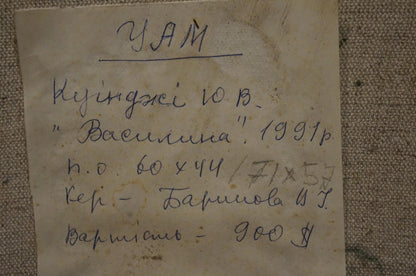 УАМ
Куінджі Ю. В.
"Василина". 1991р
п.о. 60 х 44 /71 х 57
Кер -
Вартість - 900 $